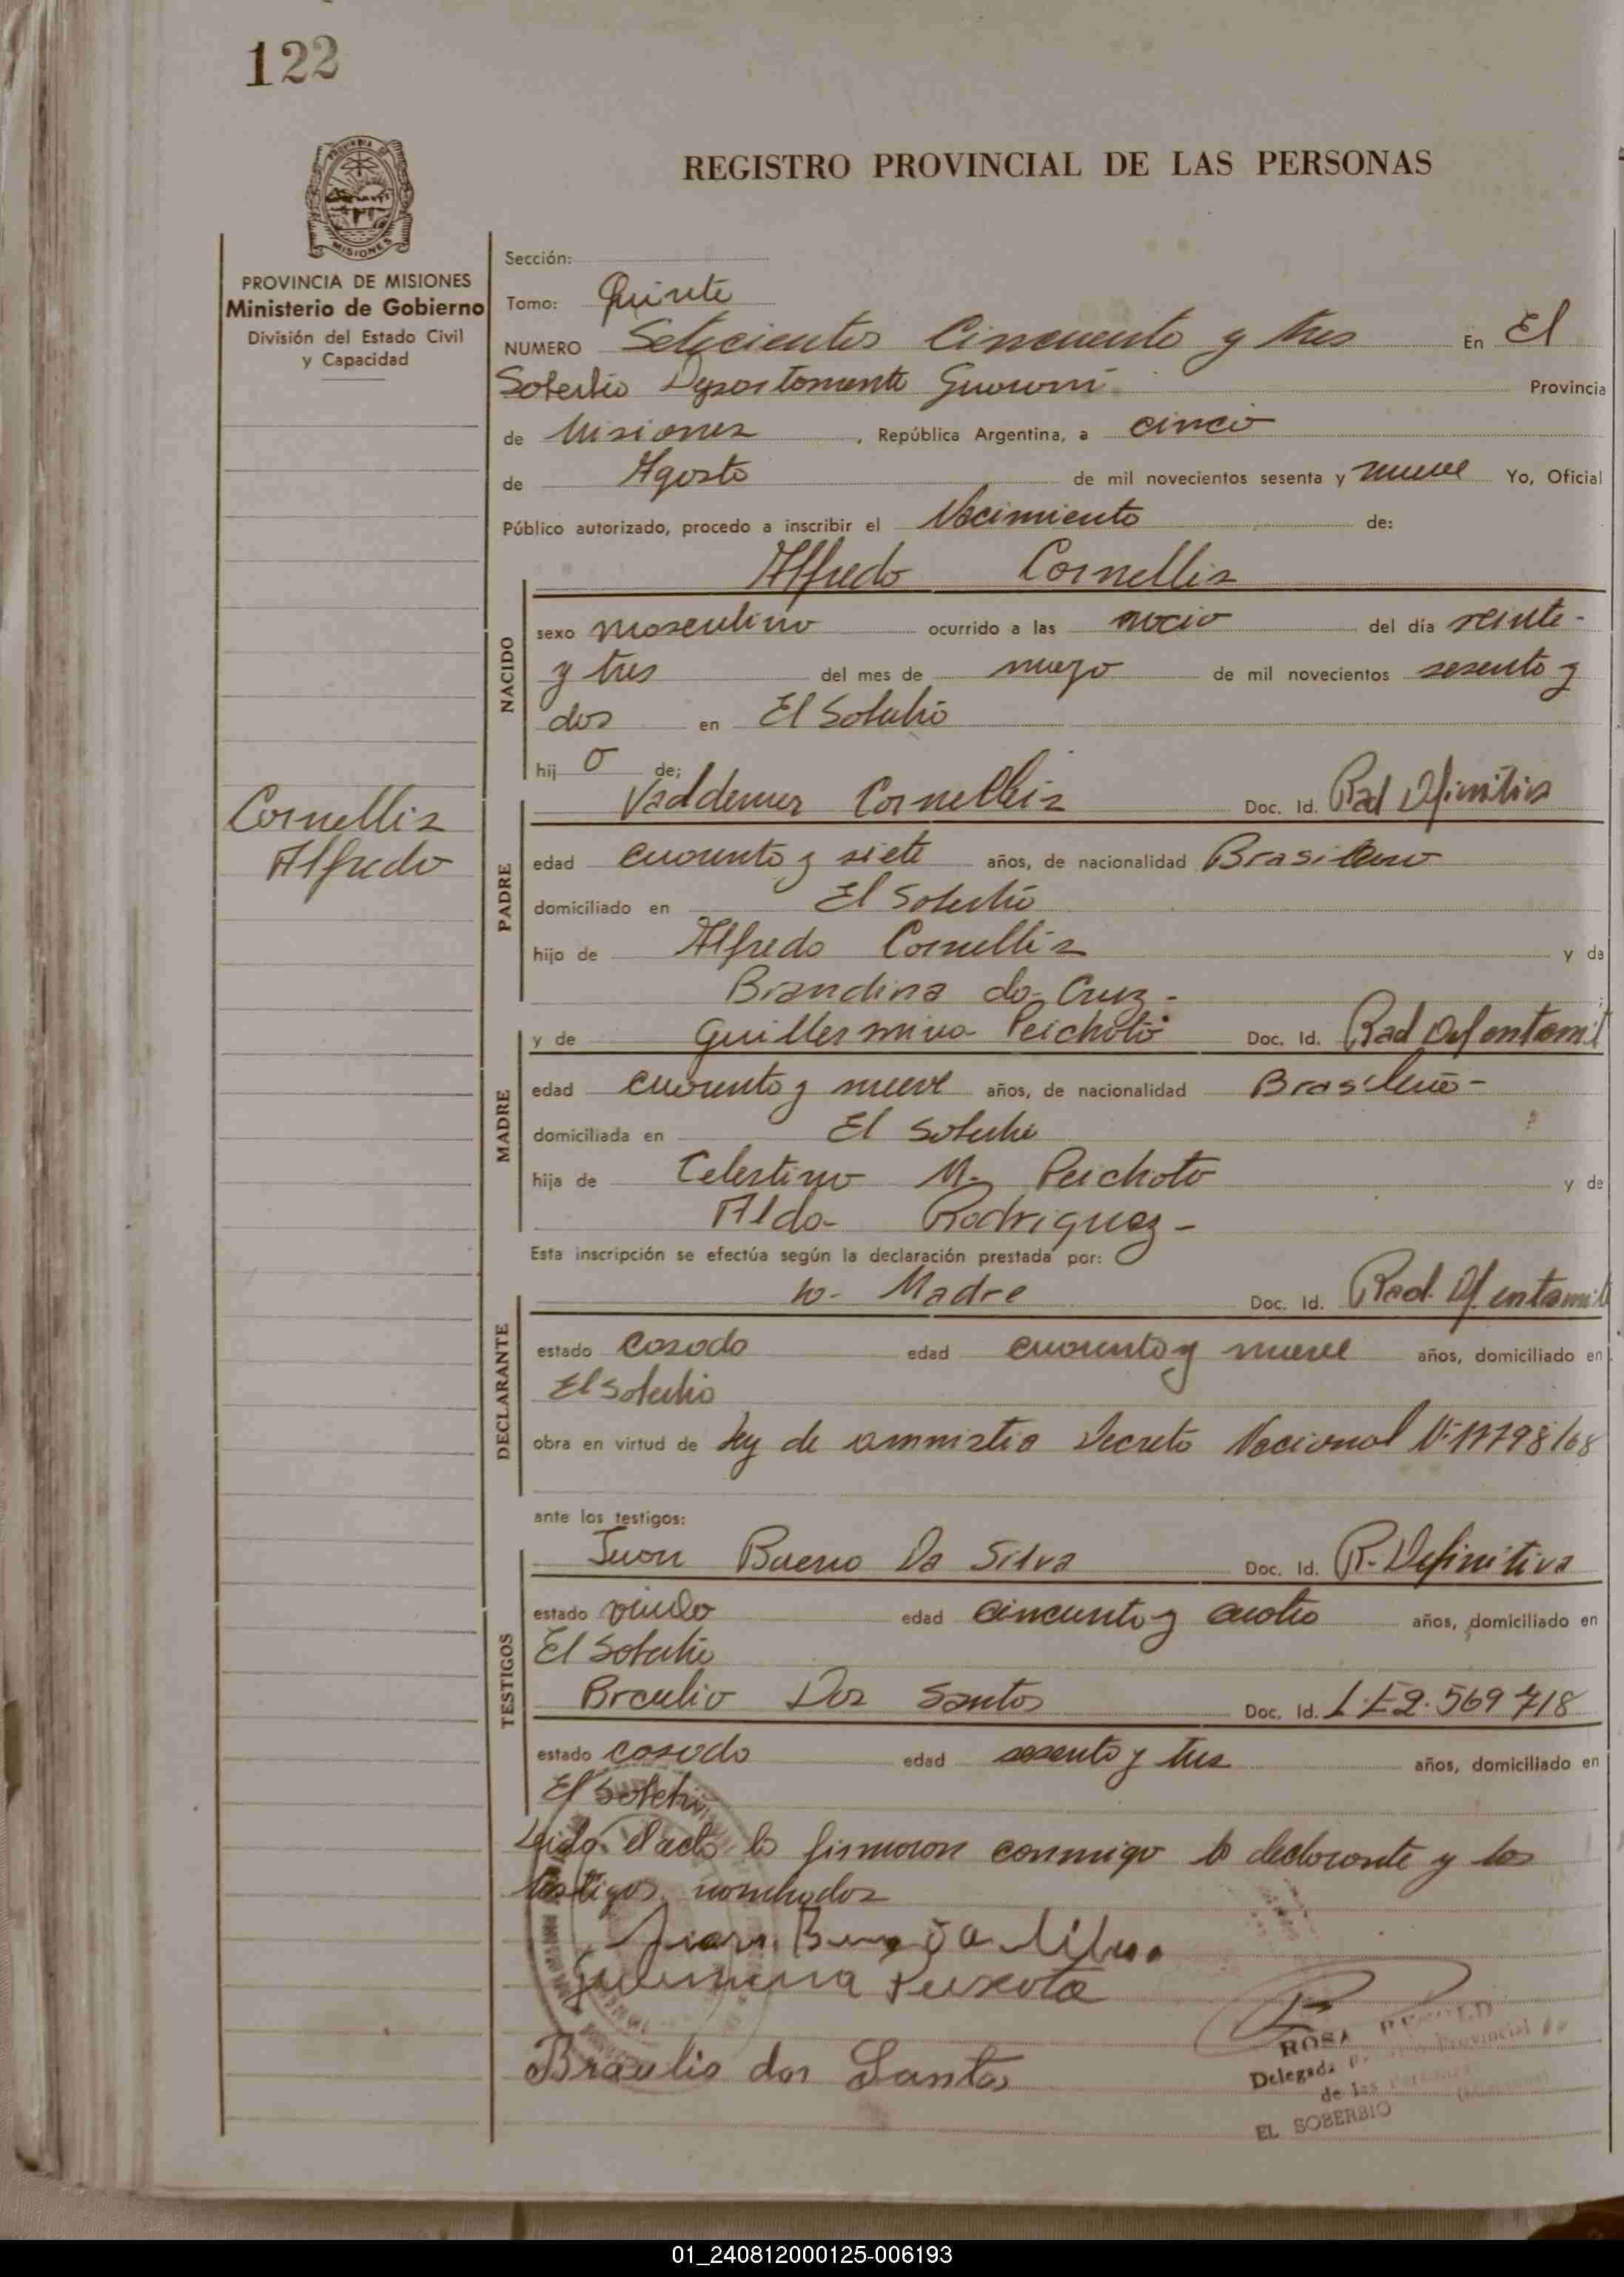 122
REGISTRO PROVINCIAL DE LAS PERSONAS
PROVINCIA DE MISIONES
Ministerio de Gobierno
División del Estado Civil
y Capacidad
Sección:
Tomo: Quinto
NUMERO Setecientos Cincuenta y tres En El
Soberbio Departamento Guaraní Provincia
de Misiones, República Argentina, a cinco
de Agosto de mil novecientos sesenta y nueve Yo, Oficial
Público autorizado, procedo a inscribir el Nacimiento de:
Alfredo Cornelliz
NACIDO
sexo masculino ocurrido a las del día veinte-
y tres del mes de mayo de mil novecientos sesenta y
dos en El Soberbio
hij o de:
Cornelliz
Alfredo
PADRE
Valdemar Cornelliz Doc. Id. Rad Definitiva
edad cuarenta y siete años, de nacionalidad Brasilero
domiciliado en El Soberbio
hijo de Alfredo Cornelliz y de
Brandina da Cruz-
MADRE
y de Guillermina Peichoto Doc. Id. Rad Def en tamit
edad cuarenta y nueve años, de nacionalidad Brasilera-
domiciliada en El Soberbio
hija de Celestino M. Peichoto y de
Alda Rodriguez-
Esta inscripción se efectúa según la declaración prestada por:
DECLARANTE
la Madre Doc. Id. Rad. Df. en tamit
estado casada edad cuarenta y nueve años, domiciliado en
El Soberbio
obra en virtud de ley de amnistia Decreto Nacional Nº 17798/68
ante los testigos:
TESTIGOS
Juan Bueno Da Silva Doc. Id. R. Definitiva
estado viudo edad cincuenta y cuatro años, domiciliado en
El Soberbio
Braulio Dos Santos Doc. Id. L.E 2.569718
estado casado edad sesenta y tres años, domiciliado en
El Soberbio
Leida el acta la firmaron conmigo la declarante y los
testigos nombrados
Juan Bueno da Silva
Guilermina Peixota
Braulio dos Santos
ROSA
Delegada Provincial
de las
EL SOBERBIO
01_240812000125-006193